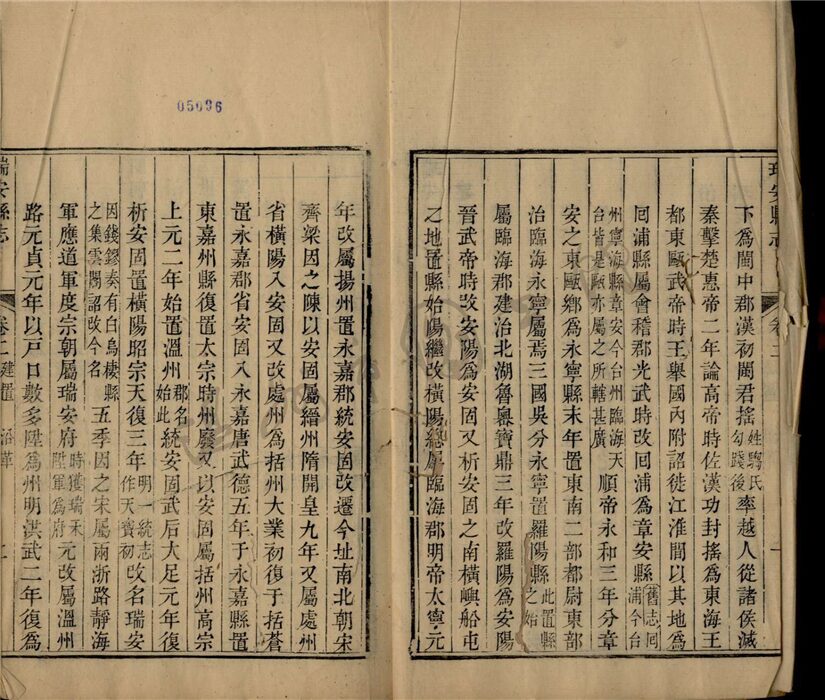 瑞安縣志
卷二
下爲閩中郡漢初閩君搖姓騶氏勾踐後率越人從諸侯滅
秦擊楚惠帝二年論高帝時佐漢功封搖爲東海王
都東甌武帝時王舉國內附詔徙江淮間以其地爲
回浦縣屬會稽郡光武時改回浦爲章安縣舊志回浦今台
州寧海縣章安今台州臨海天台皆是甌亦屬之所轄甚廣順帝永和三年分章
安之東甌鄉爲永寧縣末年置東南二部都尉東部
治臨海永寧屬焉三國吳分永寧置羅陽縣此置縣之始
屬臨海郡建治北湖魯嶴寶鼎三年改羅陽爲安陽
晉武帝時改安陽爲安固又析安固之南橫嶼船屯
之地置縣始陽繼改橫陽總屬臨海郡明帝太寧元
年改屬揚州置永嘉郡統安固改遷今址南北朝宋
齊梁因之陳以安固屬縉州隋開皇九年又屬處州
省橫陽入安固又改處州爲括州大業初復于括蒼
置永嘉郡省安固入永嘉唐武德五年于永嘉縣置
東嘉州縣復置太宗時州廢又以安固屬括州高宗
上元二年始置溫州郡名始此統安固武后大足元年復
析安固置橫陽昭宗天復三年明一統志作天寶初改名瑞安
因錢鏐奏有白烏棲縣之集雲閣詔改今名五季因之宋屬兩浙路靜海
軍應道軍度宗朝屬瑞安府時獲瑞禾陞軍爲府元改屬溫州
路元貞元年以戶口數多陞爲州明洪武二年復爲
瑞安縣志
卷二建置 沿革
05096